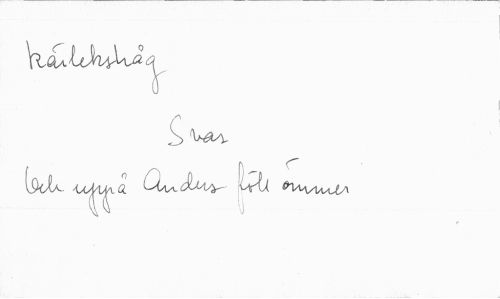 kärlekshåg
Svar
Och uppå Anders föll ömmer